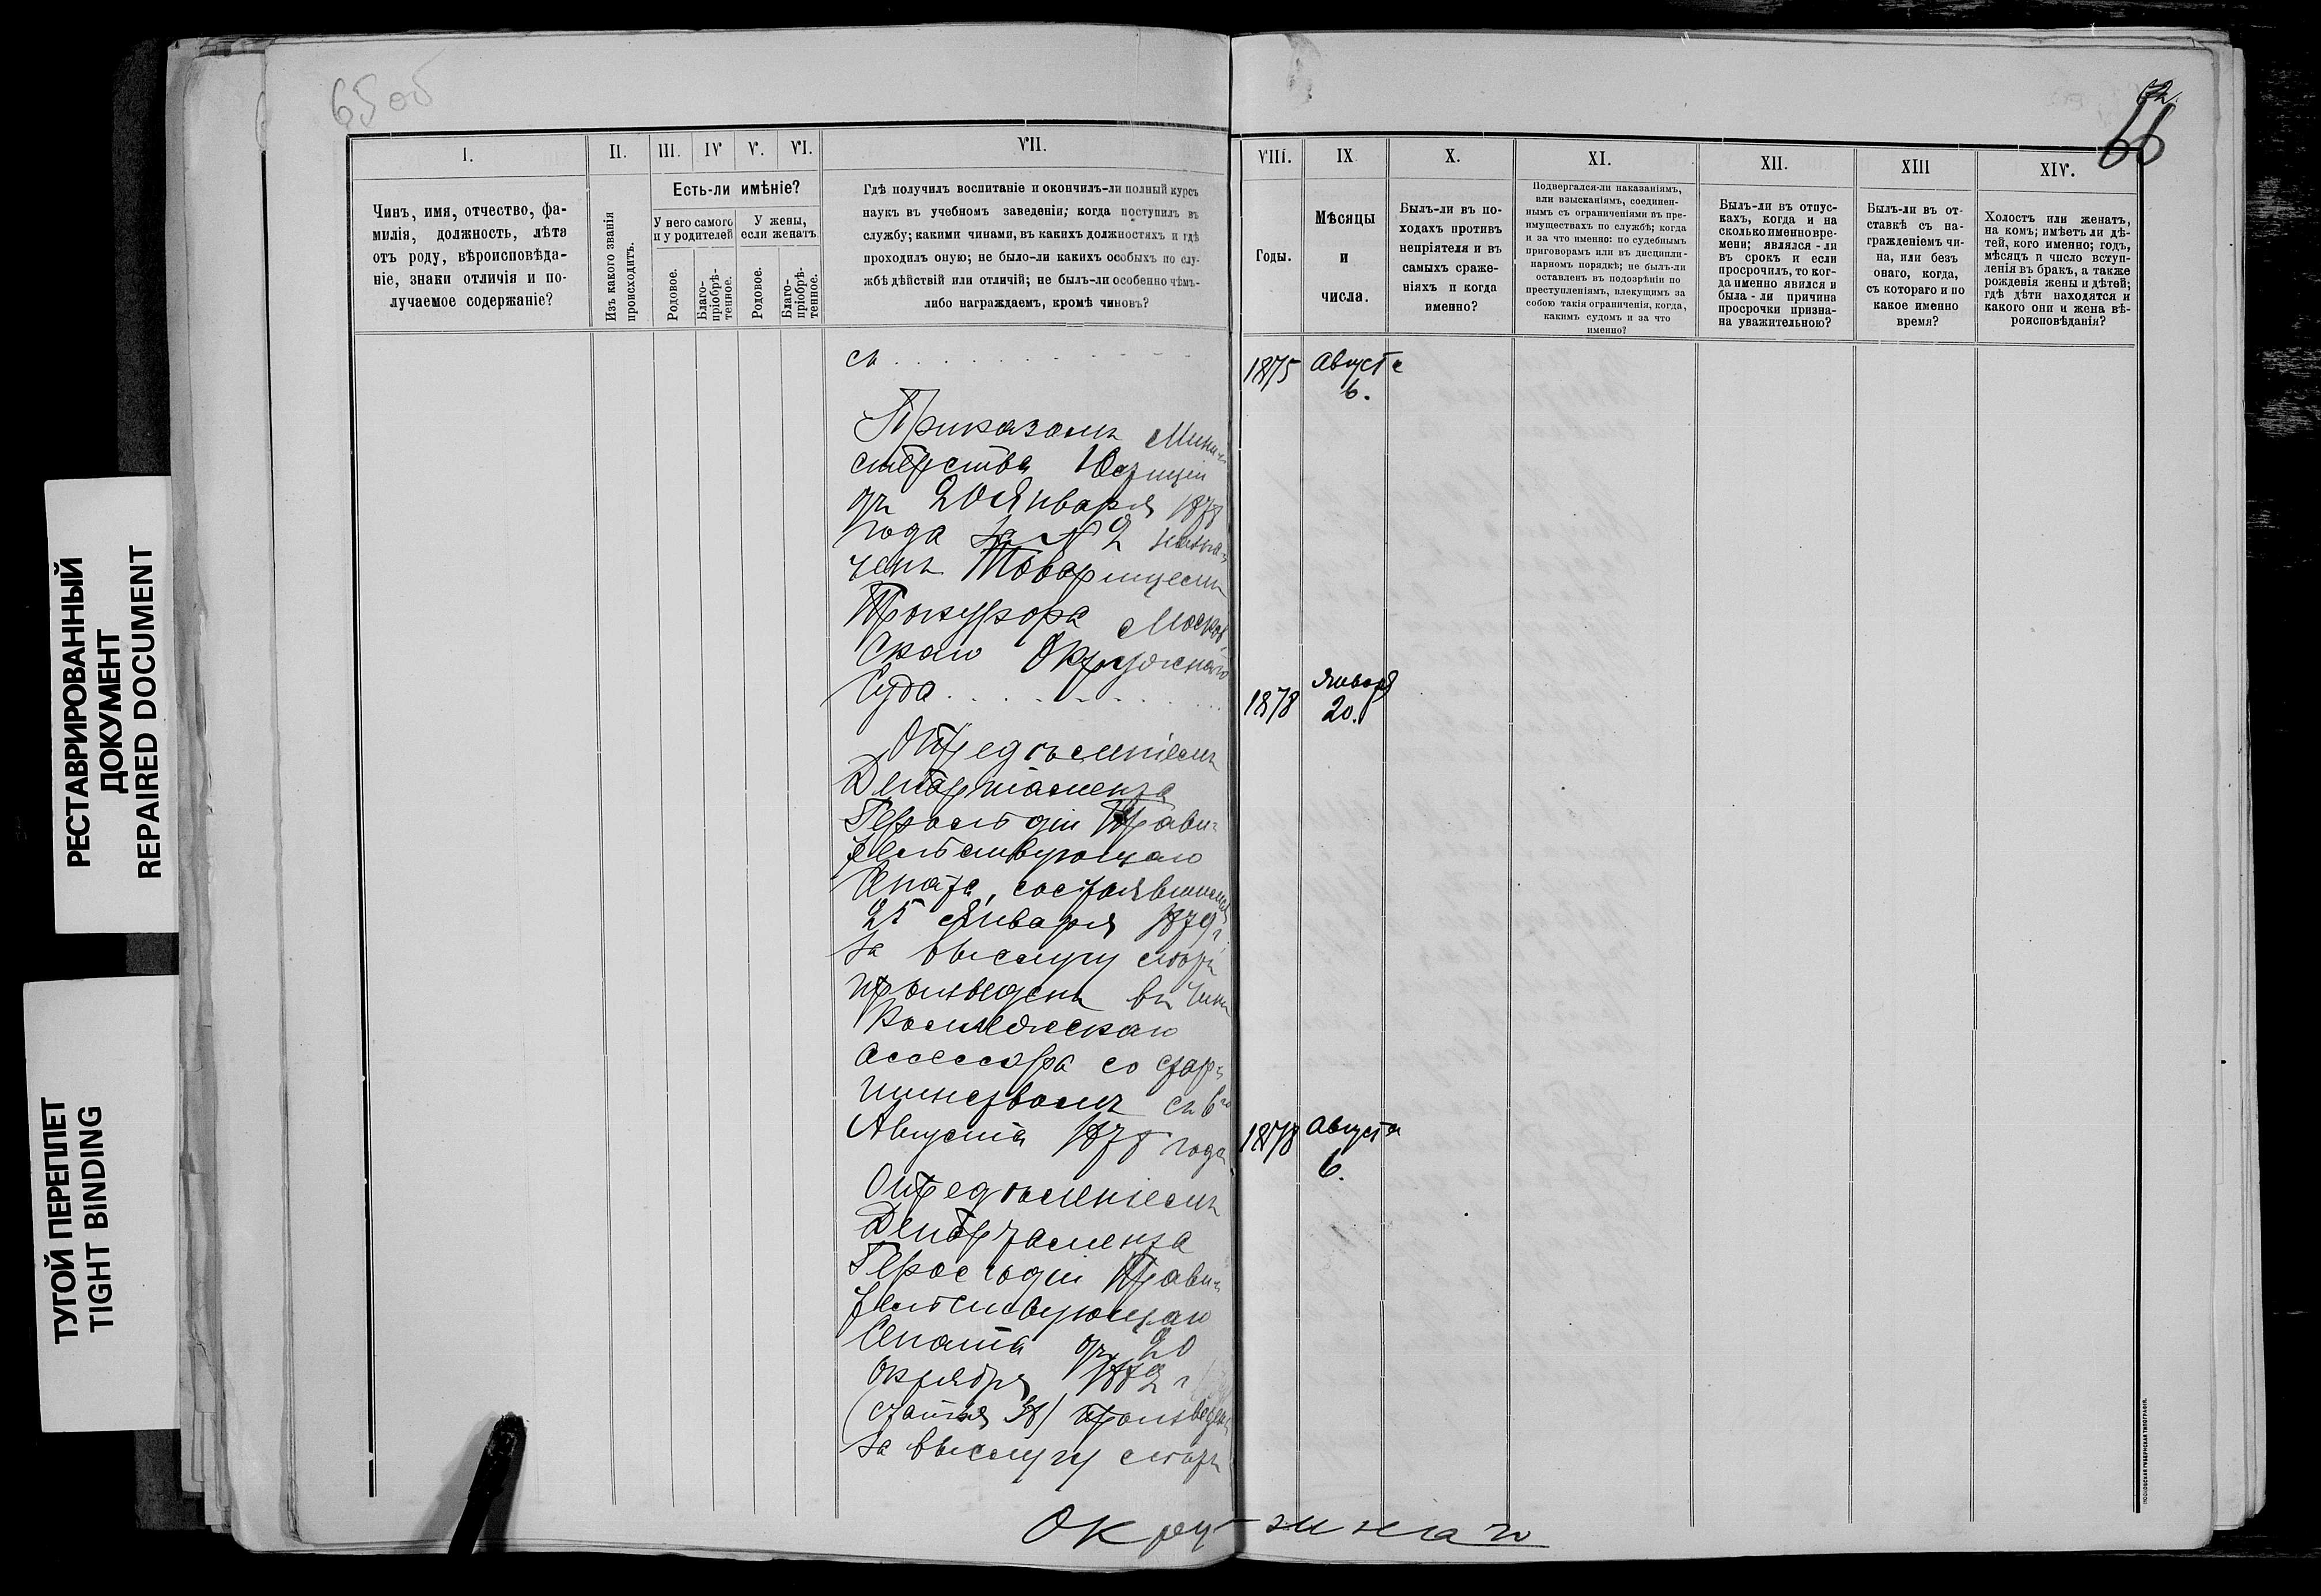 65 об
72.
66
РЕСТАВРИРОВАННЫЙ
ДОКУМЕНТ
REPAIRED DOCUMENT
ТУГОЙ ПЕРЕПЛЕТ
TIGHT BINDING
I.
Чинъ, имя, отчество, фа-
милія, должность, лѣта
отъ роду, вѣроисповѣда-
ніе, знаки отличія и по-
лучаемое содержаніе?
II.
Изъ какого званія
происходитъ.
III. IV V. VI.
Есть-ли имѣніе?
У него самого
и у родителей
У жены,
если женатъ
Родовое.
Благо-
пріобрѣ-
тенное.
Родовое.
Благо-
пріобрѣ-
тенное.
VII.
Гдѣ получилъ воспитаніе и окончилъ-ли полный курсъ
наукъ въ учебномъ заведеніи; когда поступилъ въ
службу; какими чинами, въ какихъ должностяхъ и гдѣ
проходилъ оную; не было-ли какихъ особыхъ по слу-
жбѣ дѣйствій или отличій; не былъ-ли особенно чѣмъ-
либо награждаемъ, кромѣ чиновъ?
VIII.
Годы.
IX
Мѣсяцы
и
числа.
X.
Былъ-ли въ по-
ходахъ противъ
непріятеля и въ
самыхъ сраже-
ніяхъ и когда
именно?
XI.
Подвергался-ли наказаніямъ,
или взысканіямъ, соединен-
нымъ съ ограниченіями въ пре-
имуществахъ по службѣ; когда
и за что именно: по судебнымъ
приговорамъ или въ дисципли-
нарномъ порядкѣ; не былъ-ли
оставленъ въ подозрѣніи по
преступленіямъ, влекущимъ за
собою такія ограниченія, когда,
какимъ судомъ и за что
именно?
XII.
Былъ-ли въ отпус-
кахъ, когда и на
сколько именно вре-
мени; являлся-ли
въ срокъ и если
просрочилъ, то ког-
да именно явился и
была-ли причина
просрочки призна-
на уважительною?
XIII
Былъ-ли въ от-
ставкѣ съ на-
гражденіемъ чи-
на, или безъ
онаго, когда,
съ котораго и по
какое именно
время?
XIV.
Холостъ или женатъ,
на комъ; имѣетъ ли дѣ-
тей, кого именно; годъ,
мѣсяцъ и число вступ-
ленія въ бракъ, а также
рожденія жены и дѣтей;
гдѣ дѣти находятся и
какого они и жена вѣ-
роисповѣданія?
съ . . . . . . . . . 1875 Августа
6.
Приказомъ Мини-
стерства Юстиціи
отъ 20 Января 1878
года за № 2 назна-
ченъ Товарищемъ
Прокурора Москов-
скаго Окружнаго
Суда . . . . . . . 1878 Января
20.
Опредѣленіемъ
Департамента
Герольдіи Прави-
тельствующаго
Сената, состоявшимся
25 Января 1879 г.
за выслугу лѣтъ
произведенъ въ чинъ
Коллежскаго
Ассессора со стар-
шинствомъ съ 6го
Августа 1878 года 1878 Августа
6.
Опредѣленіемъ
Департамента
Герольдіи Прави-
тельствующаго
Сената отъ 20
Октября 1882 г
произведенъ
за выслугу лѣтъ
Окружнаго
МОСКОВСКАЯ ГУБЕРНСКАЯ ТИПОГРАФІЯ.